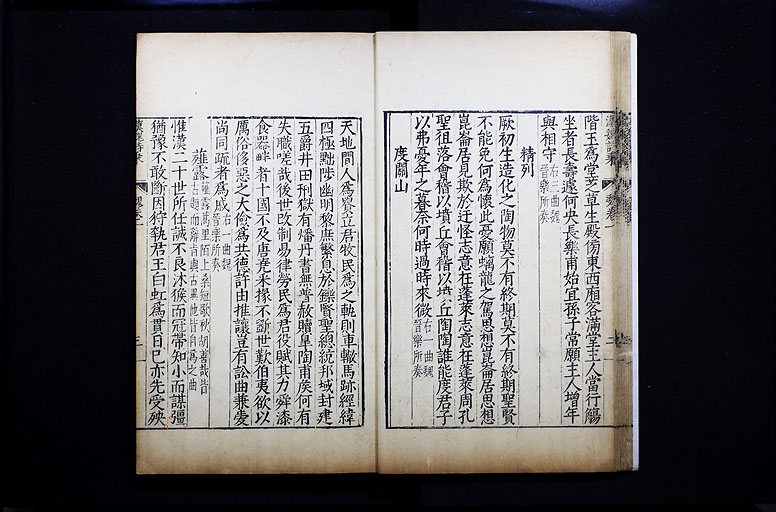 階玉爲堂芝草生殿傍東西廂客滿堂主人當行觴
坐者長壽遽何央長樂甫始宜孫子常願主人增年
與相守右三曲魏晉樂所奏
精列
厥初生造化之陶物莫不有終期莫不有終期聖賢
不能免何爲懷此憂願螭龍之駕思想崑崙居思想
崑崙居見欺於迂怪志意在蓬萊志意在蓬萊周孔
聖徂落會稽以墳丘會稽以墳丘陶陶誰能度君子
以弗憂年之暮奈何時過時來微右一曲魏晉樂所奏
度關山
天地間人爲貴立君牧民爲之軌則車轍馬跡經緯
四極黜陟幽明黎庶繁息於鑠賢聖總統邦域封建
五爵井田刑獄有燔丹書無普赦贖皐陶甫侯何有
失職嗟哉後世改制易律勞民爲君役賦其力舜漆
食器畔者十國不及唐堯采椽不斲世歎伯夷欲以
厲俗侈惡之大儉爲共德許由推讓豈有訟曲兼愛
尚同疏者爲戚右一曲魏晉樂所奏
薤露薤露蒿里陌上桑短歌秋胡善哉皆古題而辭旨與古異他皆自爲之曲
惟漢二十世所任誠不良沐猴而冠帶知小而謀彊
猶豫不敢斷因狩執君王白虹爲貫日己亦先受殃